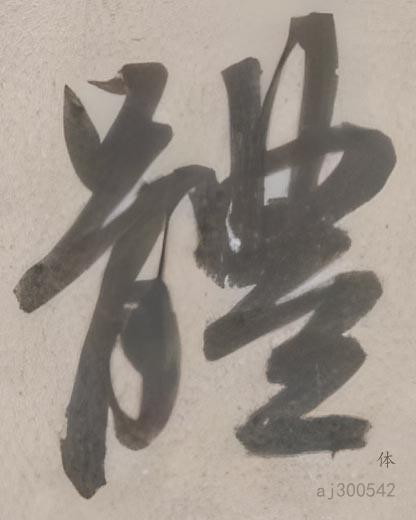 體
体
aj300542